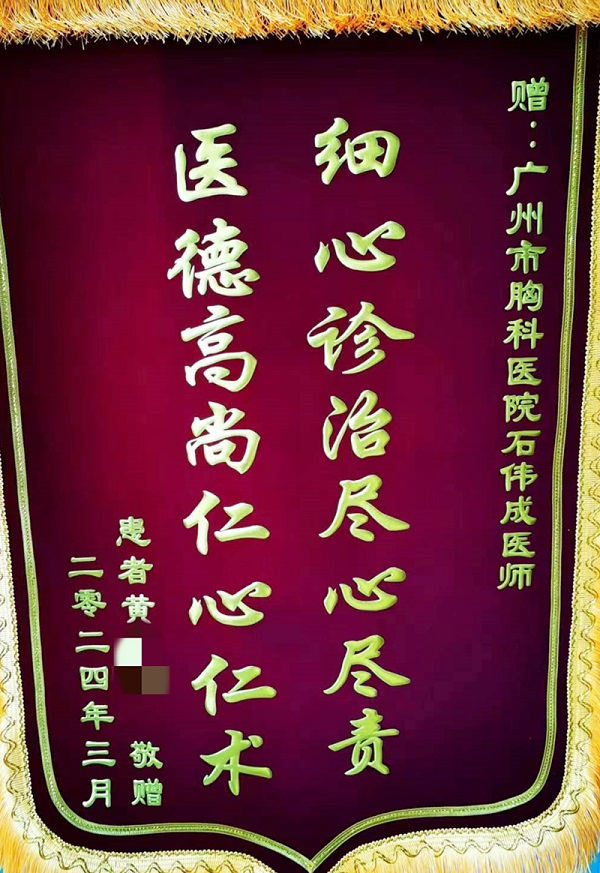 赠：广州市胸科医院石伟成医师
细心诊治尽心尽责
医德高尚仁心仁术
患者黄 敬赠
二零二四年三月